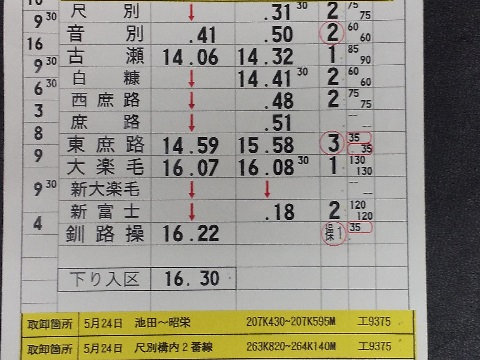 10
尺別 ↓ .31 30 2 75 75
9 30
音別 .41 .50 2 60 60
16
古瀬 14.06 14.32 1 85 90
9 30
白糠 ↓ 14.41 30 2 60 60
6 30
西庶路 ↓ .48 2 75 75
3
庶路 ↓ .51 -- --
8
東庶路 14.59 15.58 3 35 35
9
大楽毛 16.07 16.08 30 1 130 130
9 30
新大楽毛 ↓ ↓ -- --
新富士 ↓ .18 2 120 120
4
釧路操 16.22 1 35
下り入区 16.30
取卸箇所 5月24日 池田〜昭栄 207K430~207K595M 工9375
取卸箇所 5月24日 尺別構内2番線 263K820~264K140M 工9375